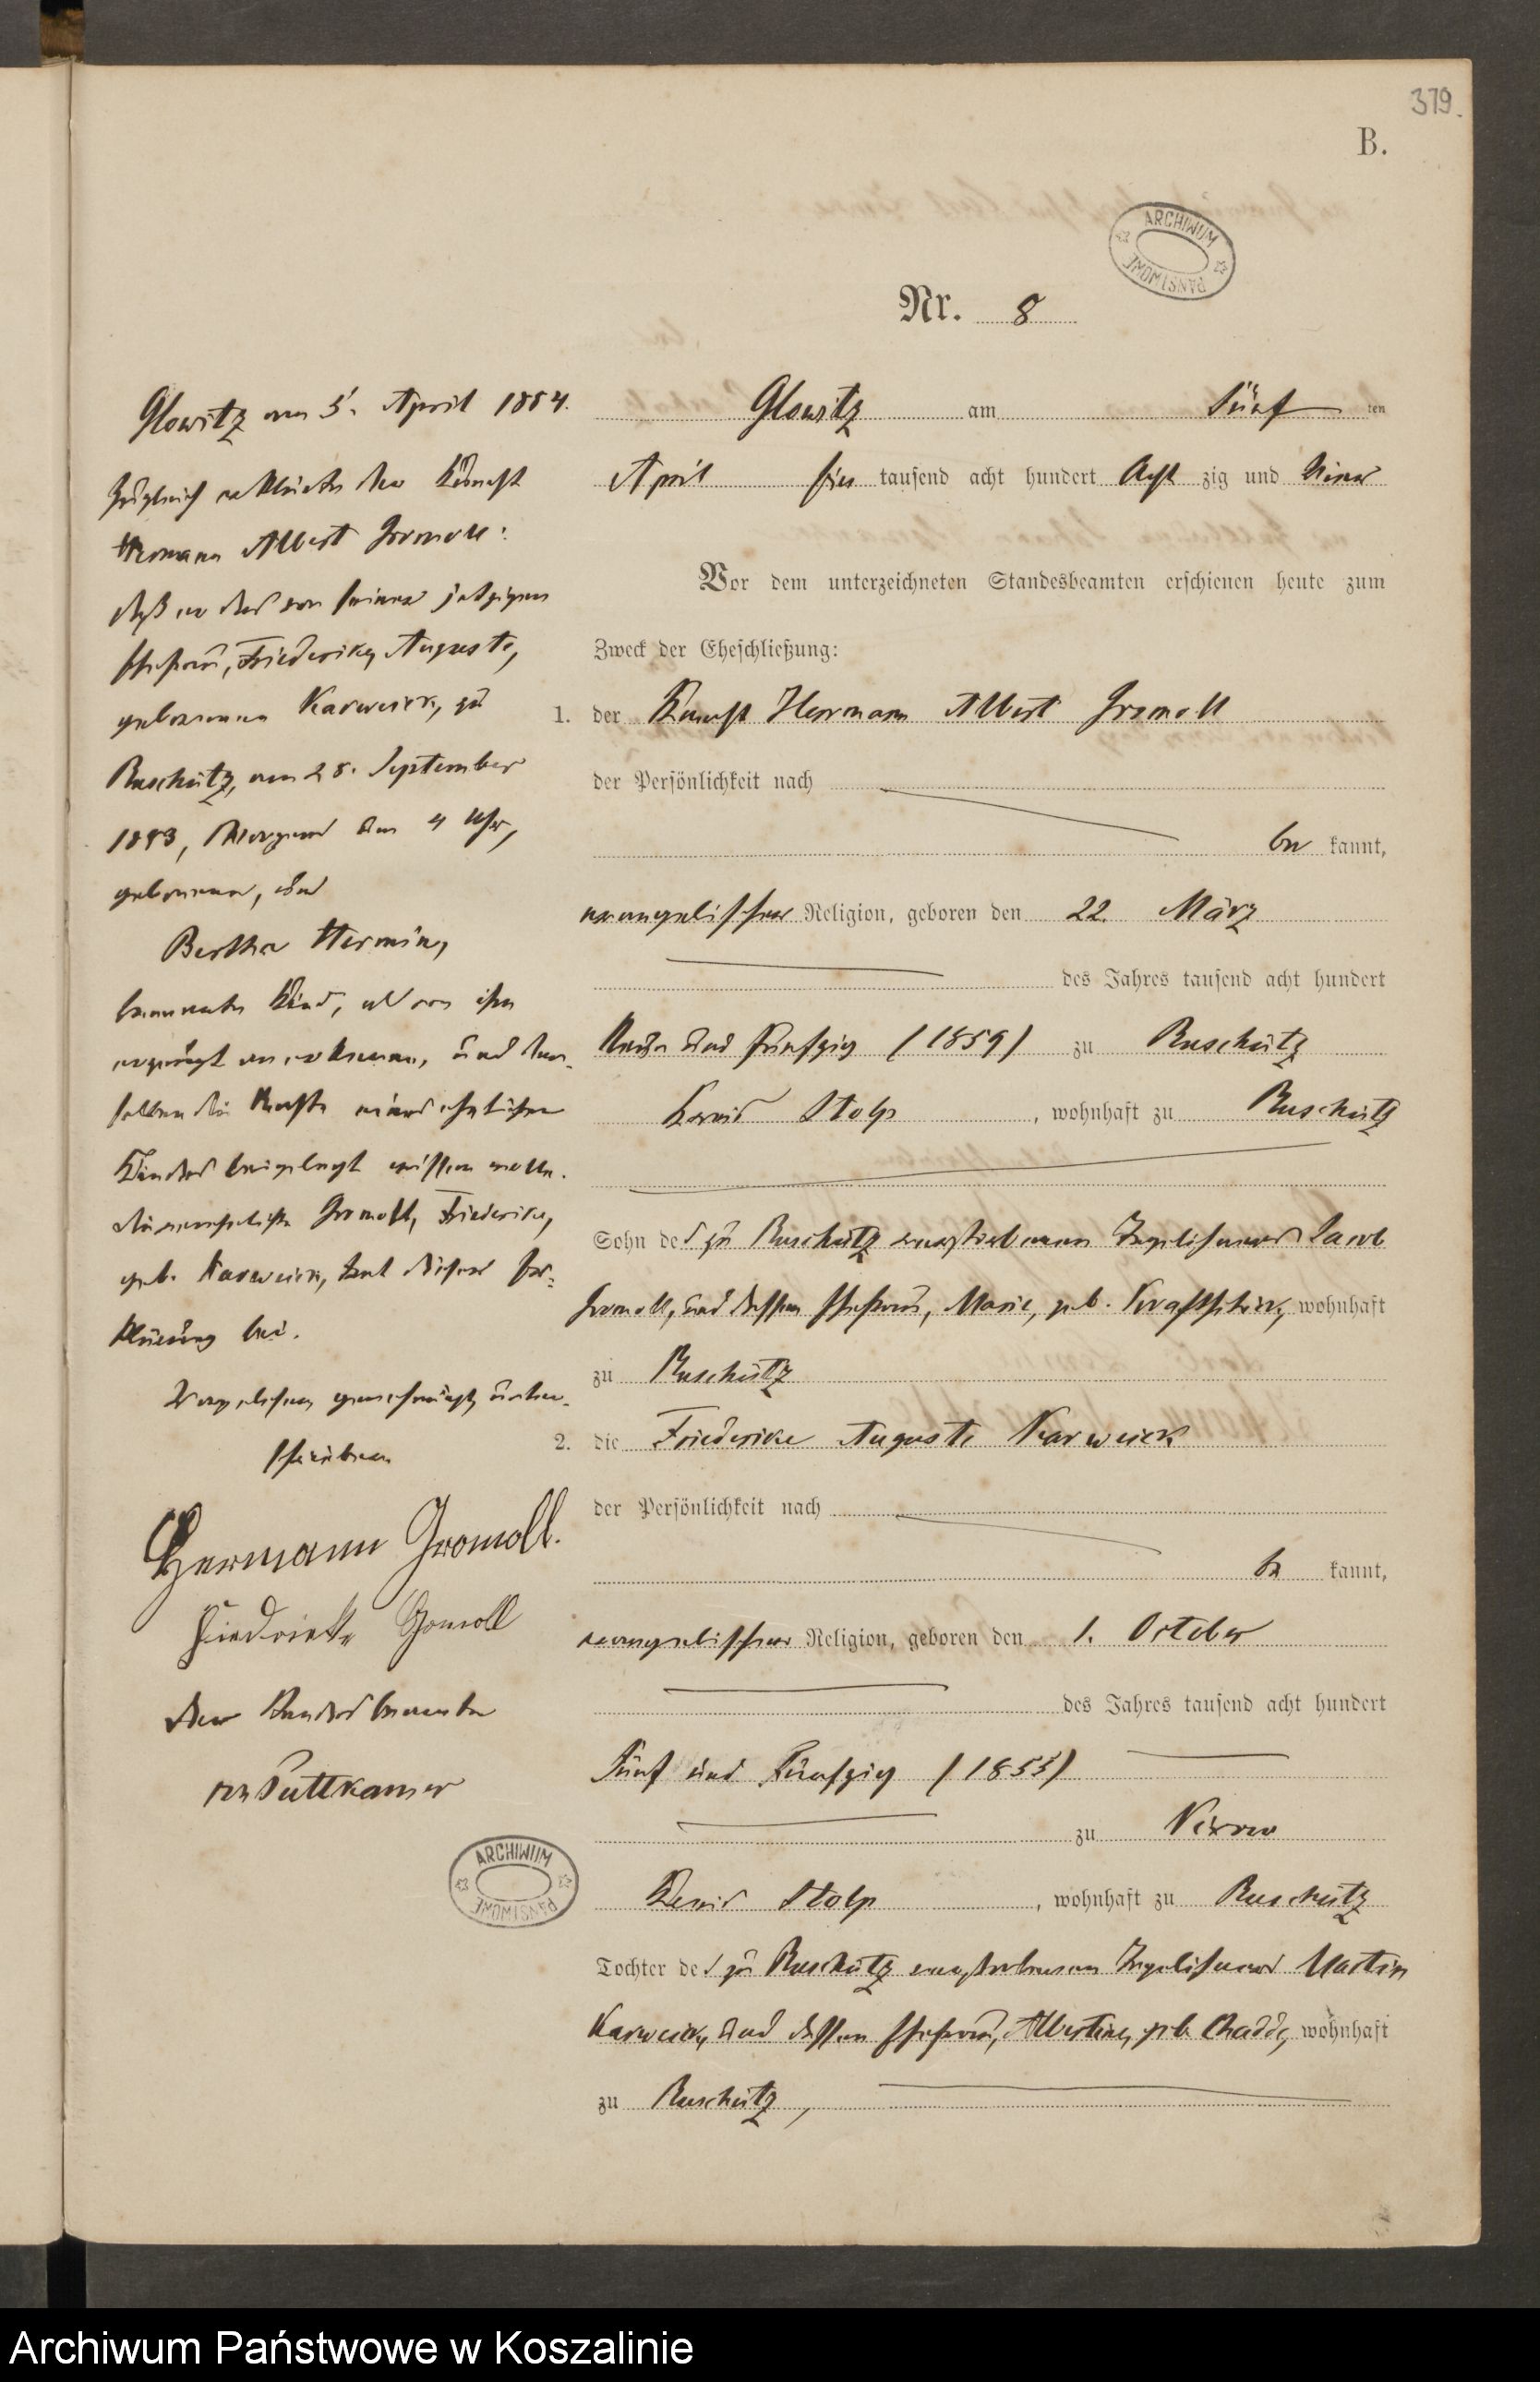 379.
B.
ARCHIWUM PAŃSTWOWE
Nr. 8
Glowitz am 5. April 1884.
Zugleich erklärte der Knecht
Hermann Albert Gromoll:
daß er das von seiner jetzigen
Ehefrau, Friederike, Auguste,
geborenen Karweick, zu
Ruschütz, am 28. September
1883, Morgens um 4 Uhr,
geborene, und
Bertha Hermine,
benannte Kind, als von ihm
erzeugt anerkenne, und dem-
selben die Rechte eines ehelichen
Kindes beigelegt wissen wolle.
Die verehelichte Gromoll, Friederike,
geb. Karweick, trat dieser Er-
klärung bei.
Vorgelesen, genehmigt, unter-
schrieben
Hermann Gromoll.
Friedericke Gromoll
Der Standesbeamte
von Puttkamer
ARCHIWUM PAŃSTWOWE
Glowitz am Fünf ten
April ein tausend acht hundert Acht zig und Vier
Vor dem unterzeichneten Standesbeamten erschienen heute zum
Zweck der Eheschließung:
1. der Knecht Hermann Albert Gromoll
der Persönlichkeit nach
be kannt,
evangelischer Religion, geboren den 22. März
des Jahres tausend acht hundert
Neun und Fünfzig (1859) zu Ruschütz
Kreis Stolp, wohnhaft zu Ruschütz
Sohn des zu Ruschütz verstorbenen Jacob
Gromoll, und dessen Ehefrau, Marie, geb. wohnhaft
zu Ruschütz
2. die Friederike Auguste Karweick
der Persönlichkeit nach
be kannt,
evangelischer Religion, geboren den 1. October
des Jahres tausend acht hundert
Fünf und Fünfzig (1855)
zu Vixow
Kreis Stolp, wohnhaft zu Ruschütz
Tochter des zu Ruschütz verstorbenen Martin
Karweick, und dessen Ehefrau, Albertine, geb. wohnhaft
zu Ruschütz,
Archiwum Państwowe w Koszalinie